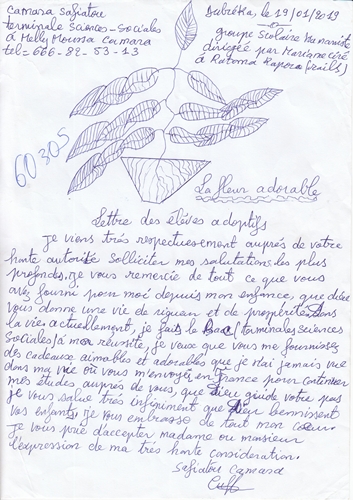 Camara Safiatou
terminale Sciences-Sociales
à Helly Moussa Camara
tel- 666-82-53-13
Dubréka, le 19/01/2019
groupe Scolaire Humaniste
dirigée par Mariame ciré
à Ratoma Rapora (rails)
60305
La fleur adorable
Lettre des élèves adoptifs
Je viens très respectuesement auprès de votre
haute autorité solliciter mes salutations les plus
profondes, je vous remercie de tout ce que vous
avez fourni pour moi depuis mon enfance, que dieu
vous donne une vie de riguen et de propérités dans
la vie actuellement, je fais le Bac (terminales sciences
Sociales) à mon réussite, je veux que vous me fournissez
des cadeaux aimables et adorables que je n'ai jamais vue
dans ma vie où vous m'envoyer en France pour continuer
mes études auprès de vous, que dieu guide votre pas
je vous salue très infiniment que dieu bennissent
vos enfants, je vous embrasse de tout mon cœur.
Je vous prie d'accepter madame ou monsieur
l'expression de ma très haute consideration.
Safiatou Camara